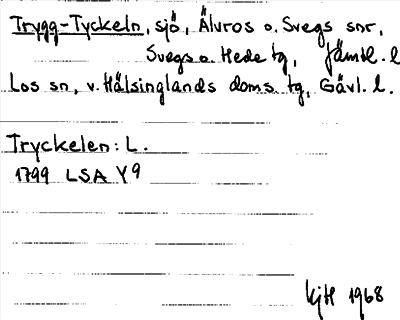 Trygg-Tyckeln, sjö, Älvros o. Svegs snr,
Svegs o. Hede tg, Jämtl. l
Los sn, v. Hälsinglands doms. tg, Gävl. l.
Tryckelen: L.
1799 LSA Y9
1968